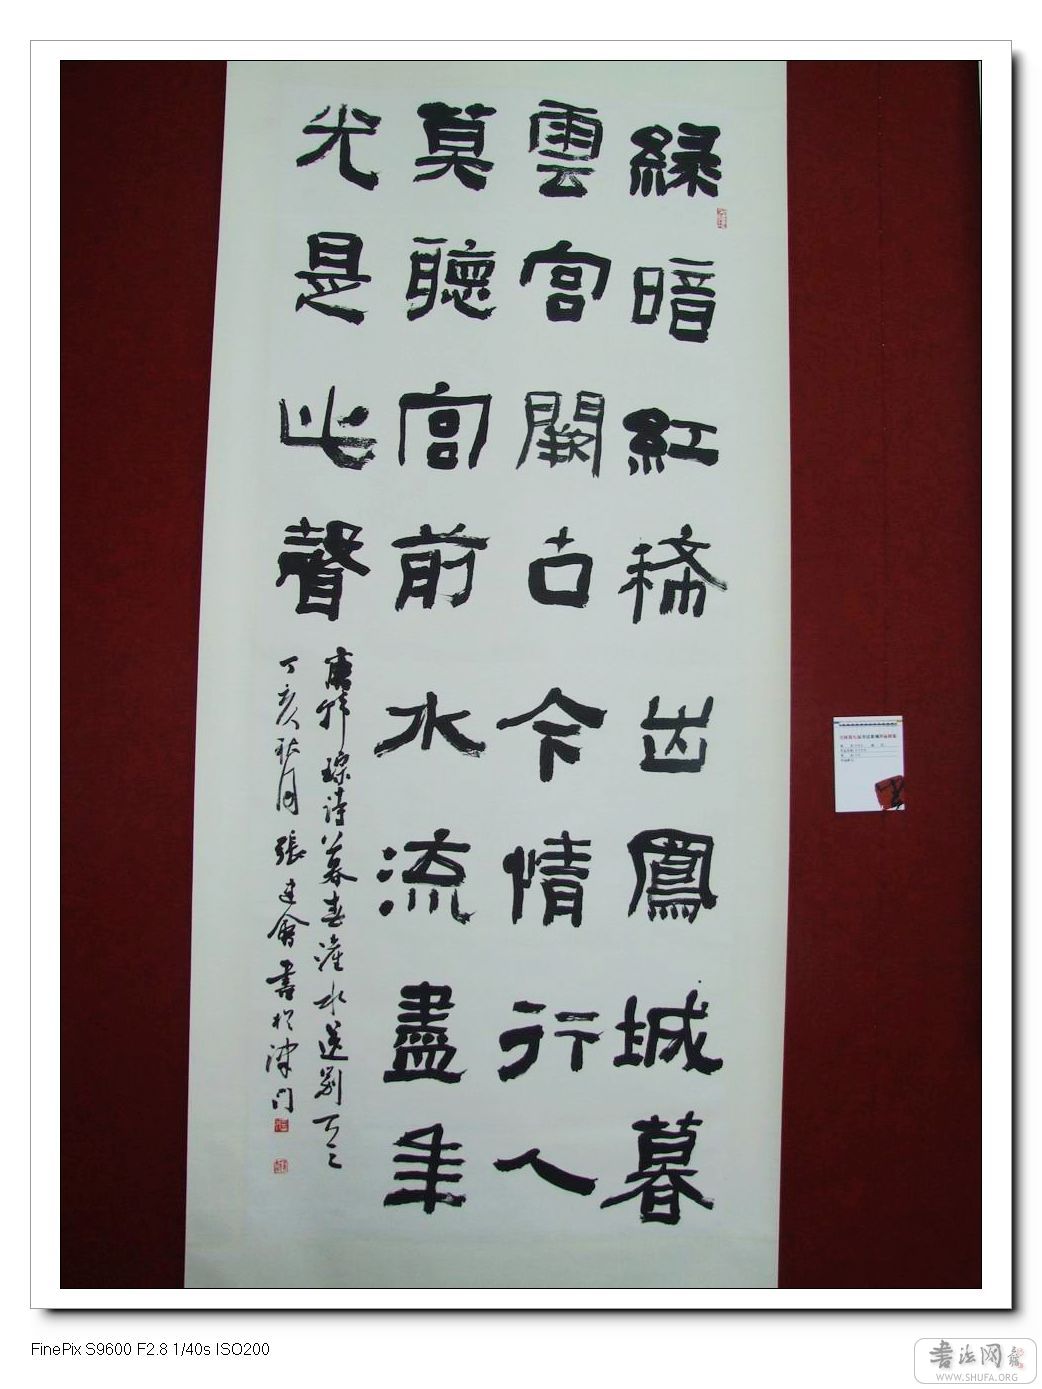 緑暗紅稀出鳳城暮
雲宮闕古今情行人
莫聽宮前水流盡年
光是此聲
唐韓琮詩暮春滻水送别
丁亥秋月張建會書於津门
FinePix S9600 F2.8 1/40s ISO200
書法网
WWW.SHUFA.ORG